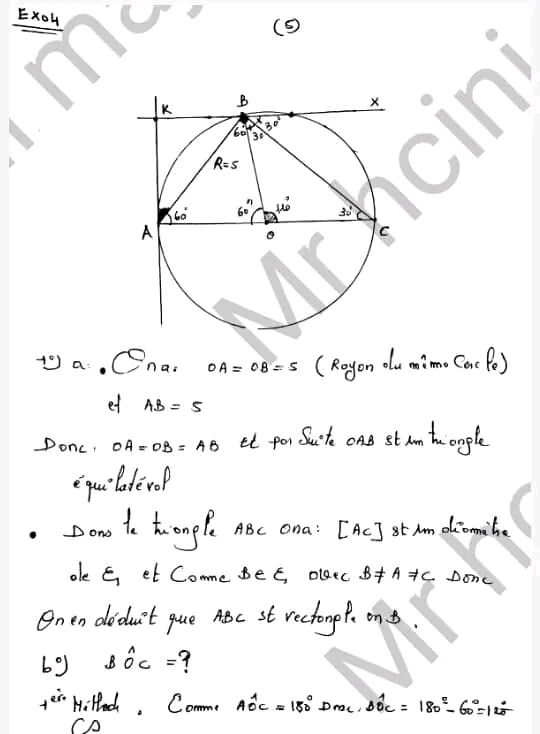 Exo4
(5)
K B X
60° 30 30°
R=5
60° 60° 120° 30°
A O C
1°) a. On a. OA = OB = 5 (Rayon du même Cercle)
et AB = 5
Donc. OA = OB = AB Et par Suite OAB st un triangle
équilatéral
• Dans le triangle ABC ona: [AC] st un diamètre
de ξ, et Comme B∈ξ, avec B≠A≠C Donc
On en déduit que ABC st rectangle en B.
b°) BÔC = ?
1ère Méthode. Comme AÔC = 180° Donc, BÔC = 180° - 60° = 120°
Mr hcini